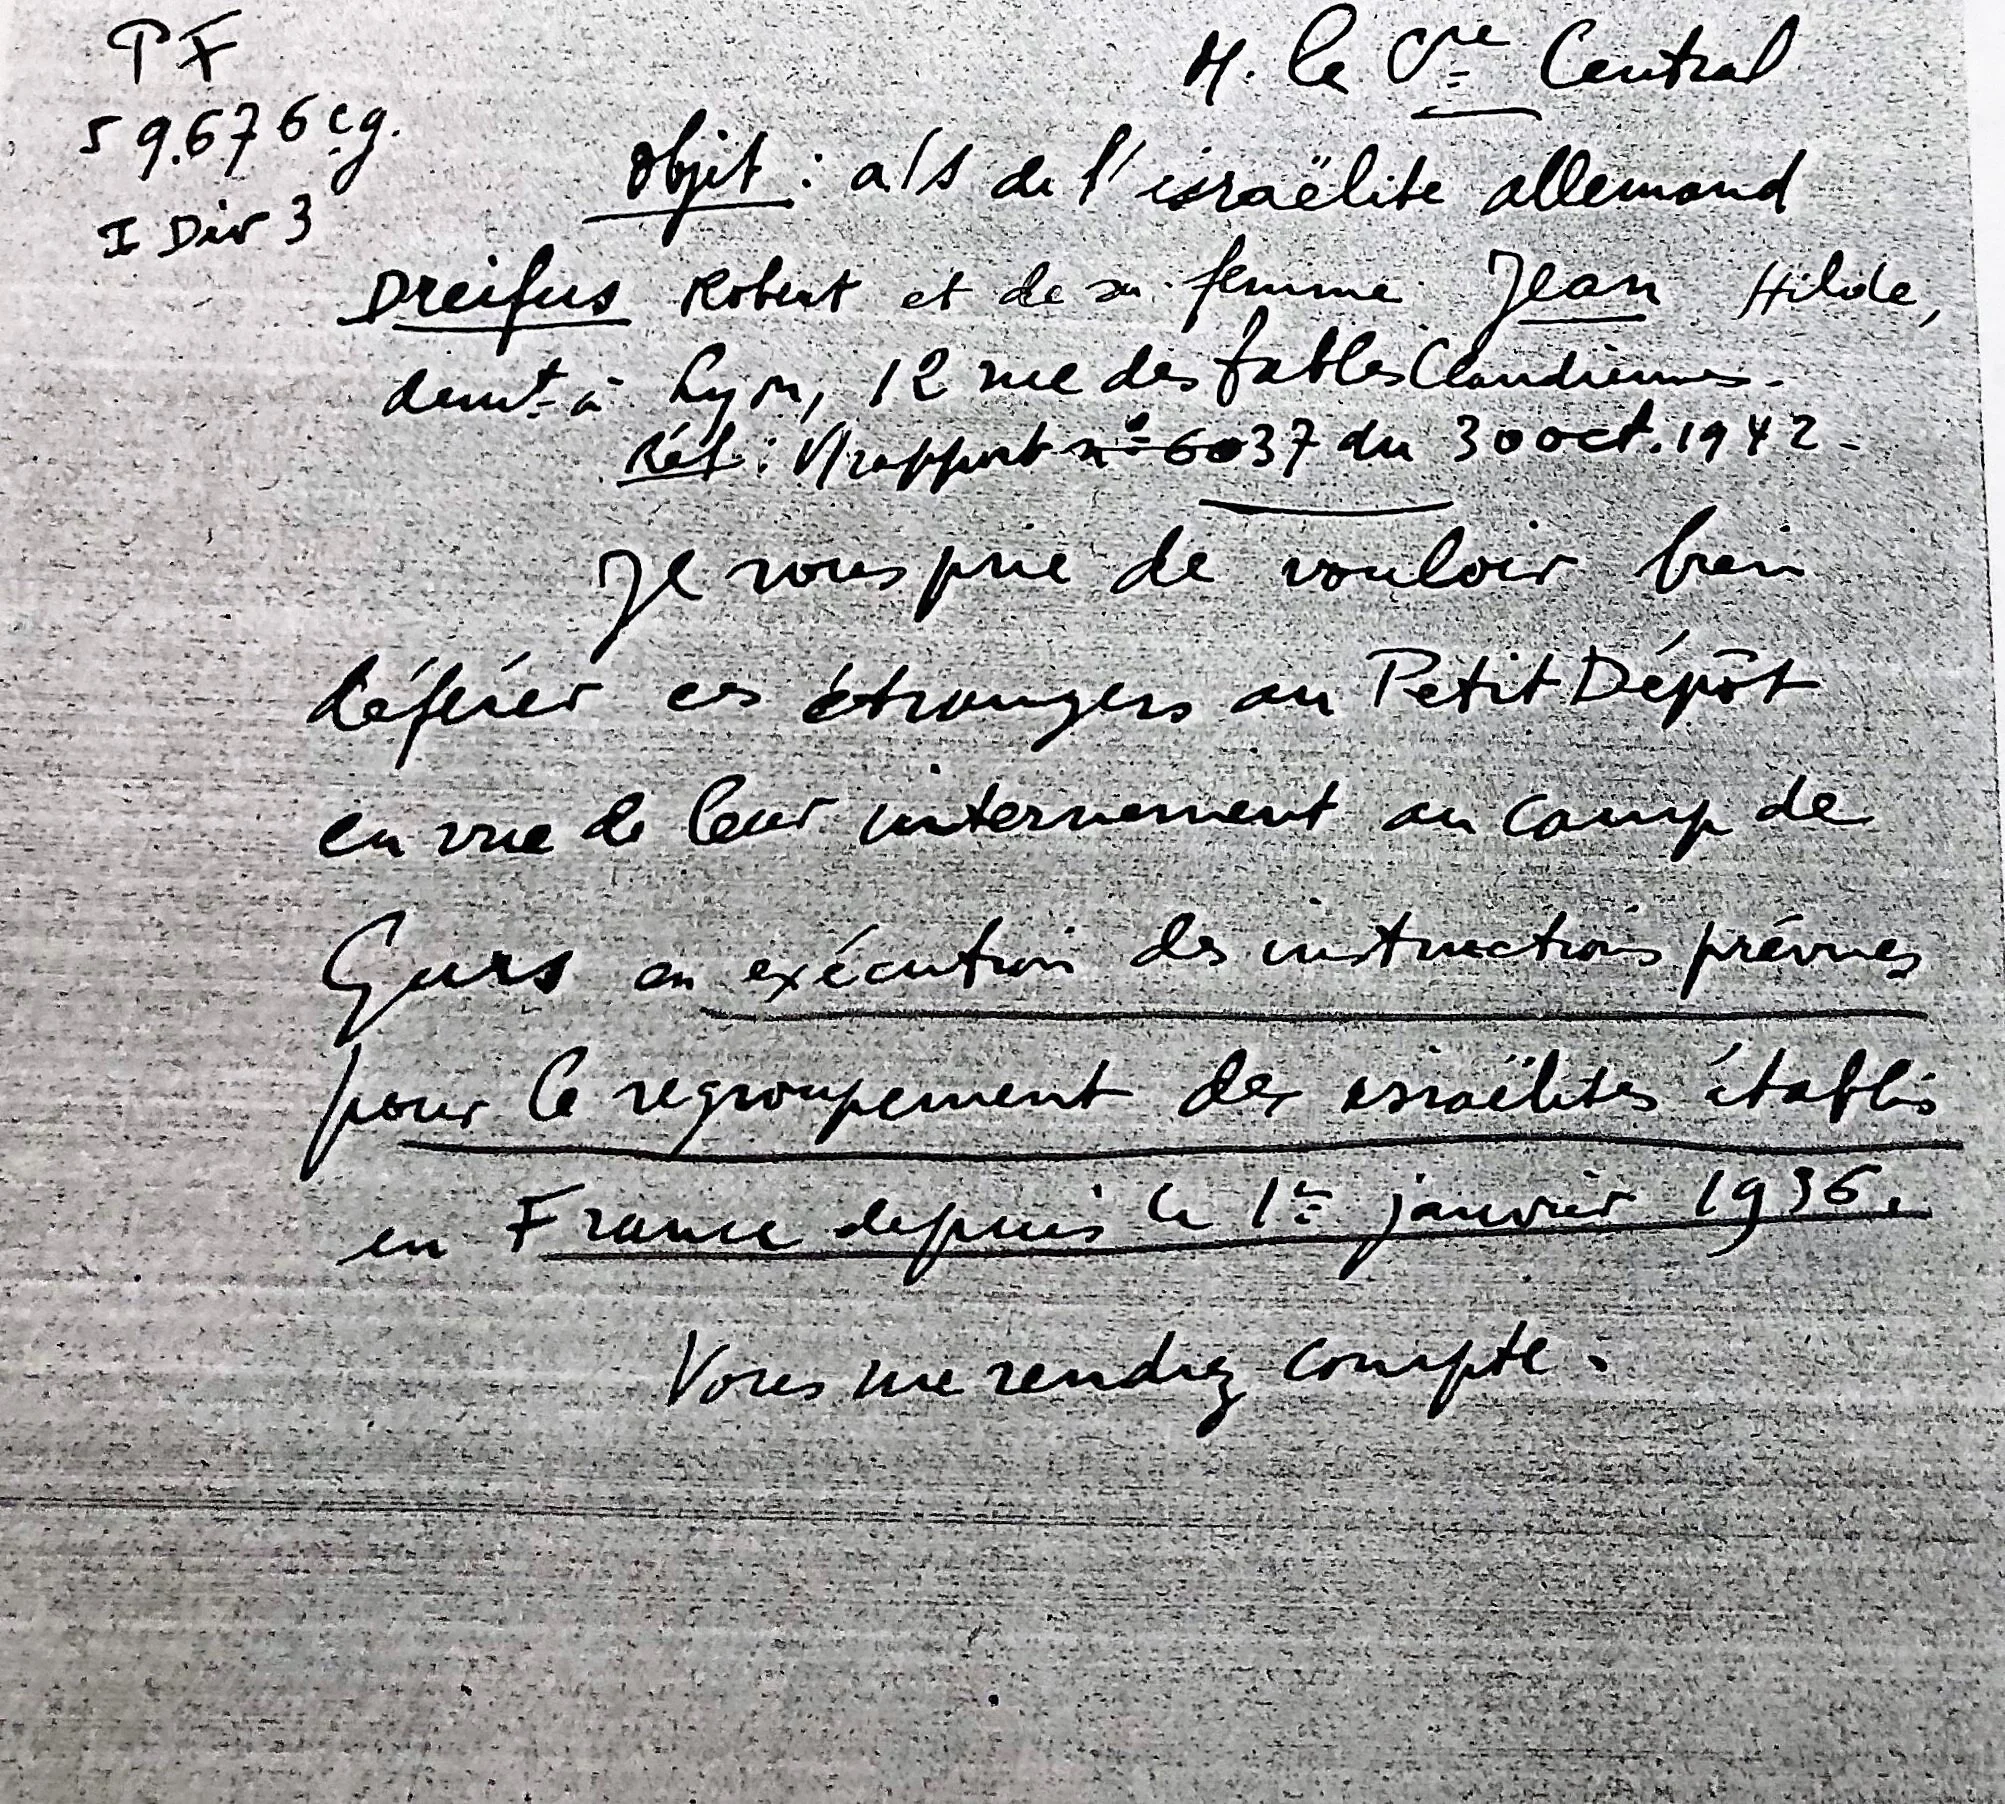 PF
59.676 cg.
I Div 3
M. le Cre Central
Objet : a/s de l'israëlite allemand
Dreifus Robert et de sa femme Jean Hilde,
demt à Lyon, 12 rue des fables Claudiennes.
Réf : V/rapport n° 6037 du 30 oct. 1942 -
Je vous prie de vouloir bien
déférer ces étrangers au Petit Dépôt
en vue de leur internement au camp de
Gurs en exécution des instructions prévues
pour le regroupement des israëlites établis
en France depuis le 1er janvier 1936.
Vous me rendrez compte.